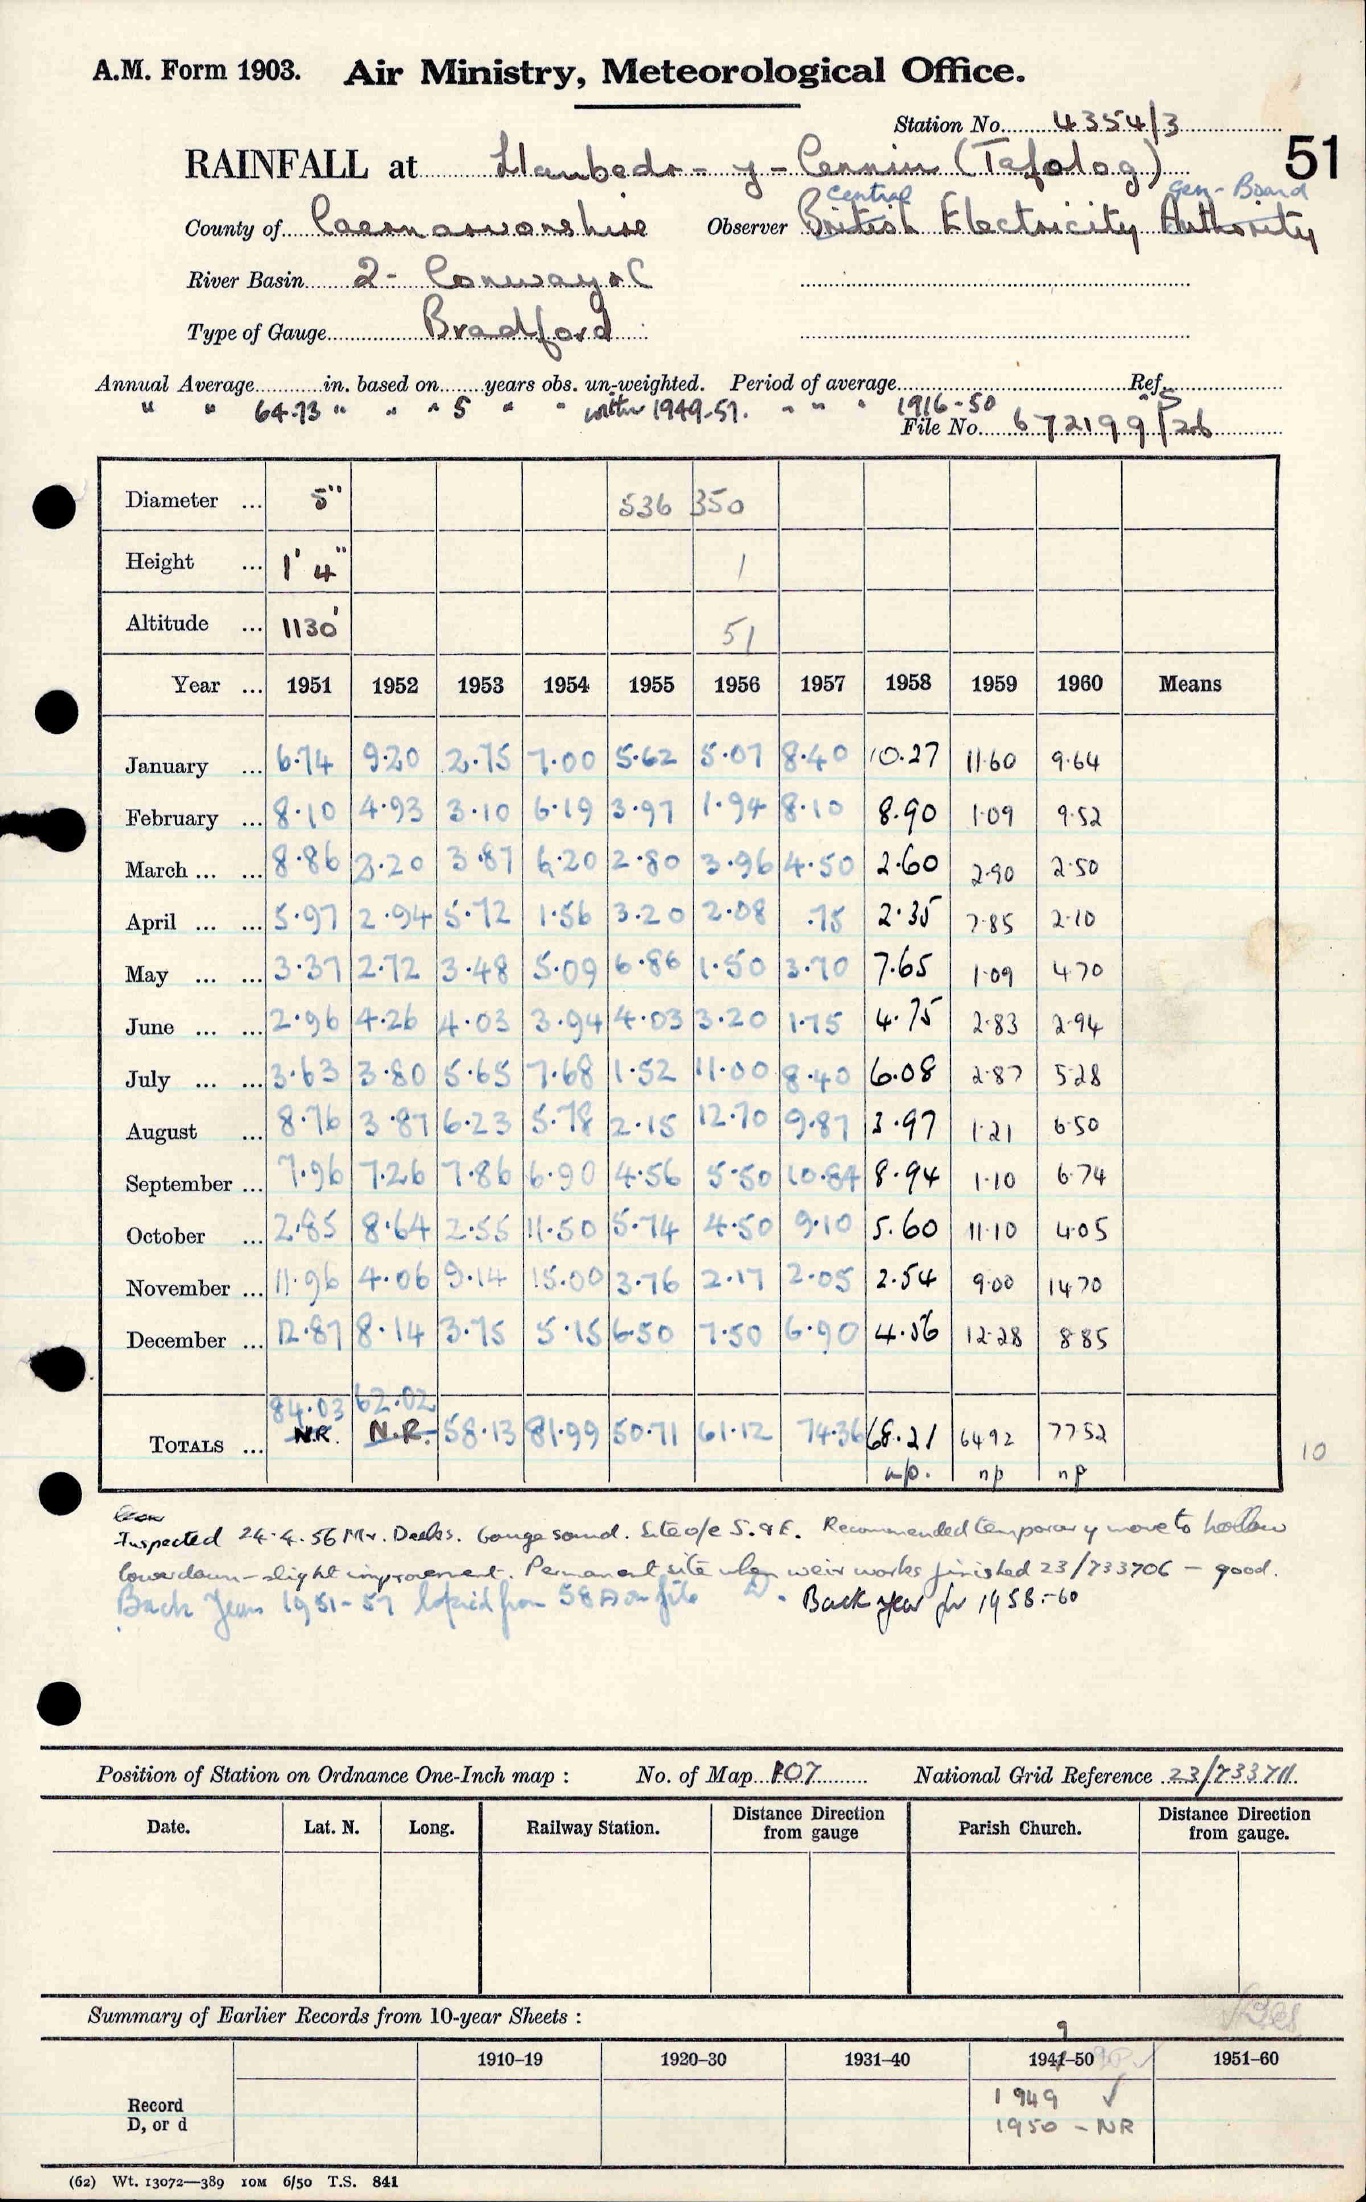 A.M. Form 1903. Air Ministry, Meteorological Office.
Station No. 4354/3
RAINFALL at Llanbedr-y-Cennin (Tafolog) 51
Central Gen. Board
County of Caernarvonshire Observer British Electricity Authority
River Basin 2- Conway &C
Type of Gauge Bradford
Annual Average in. based on years obs. un-weighted. Period of average Ref.
" " 64.73 " " " 5 " " within 1949-57. " " " 1916-50 " S
File No. 672199/26
Diameter ... 5" 536 350
Height ... 1' 4" 1
Altitude ... 1130' 51
Year ... 1951 1952 1953 1954 1955 1956 1957 1958 1959 1960 Means
January ... 6.74 9.20 2.75 7.00 5.62 5.07 8.40 10.27 11.60 9.64
February ... 8.10 4.93 3.10 6.19 3.97 1.94 8.10 8.90 1.09 9.52
March ... ... 8.86 2.20 3.87 6.20 2.80 3.96 4.50 2.60 2.90 2.50
April ... ... 5.97 2.94 5.72 1.56 3.20 2.08 .75 2.35 7.85 2.10
May ... ... 3.37 2.72 3.48 5.09 6.86 1.50 3.70 7.65 1.09 4.70
June ... ... 2.96 4.26 4.03 3.94 4.03 3.20 1.75 4.75 2.83 2.94
July ... ... 3.63 3.80 5.65 7.68 1.52 11.00 8.40 6.08 2.87 5.28
August ... 8.76 3.87 6.23 5.78 2.15 12.70 9.87 3.97 1.21 6.50
September ... 7.96 7.26 7.86 6.90 4.56 5.50 10.84 8.94 1.10 6.74
October ... 2.85 8.64 2.55 11.50 5.74 4.50 9.10 5.60 11.10 4.05
November ... 11.96 4.06 9.14 15.00 3.76 2.17 2.05 2.54 9.00 14.70
December ... 12.87 8.14 3.75 5.15 6.50 7.50 6.90 4.56 12.28 8.85
84.03 62.02
TOTALS ... N.R. N.R. 58.13 81.99 50.71 61.12 74.36 68.21 64.92 77.52 10
n/p. np np
Inspected 24.4.56 Mr. Deeks. Gauge sound. Site o/e S. & E. Recommended temporary move to hollow
lower down - slight improvement. Permanent site when weir works finished 23/733706 - good.
Back Years 1951-57 copied from 58 A on file Back year for 1958-60
Position of Station on Ordnance One-Inch map : No. of Map 107 National Grid Reference 23/733711
Date. Lat. N. Long. Railway Station. Distance Direction from gauge Parish Church. Distance Direction from gauge.
Summary of Earlier Records from 10-year Sheets :
9
1910–19 1920–30 1931–40 1941–50 1951–60
Record 1949 ✓
D, or d 1950 - NR
(62) Wt. 13072—389 10M 6/50 T.S. 841